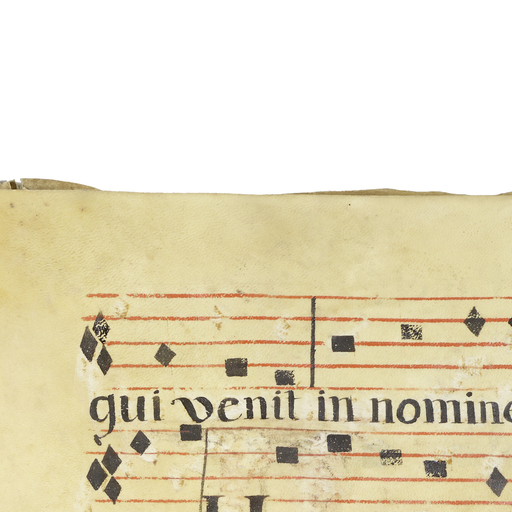 qui venit in nomine
H